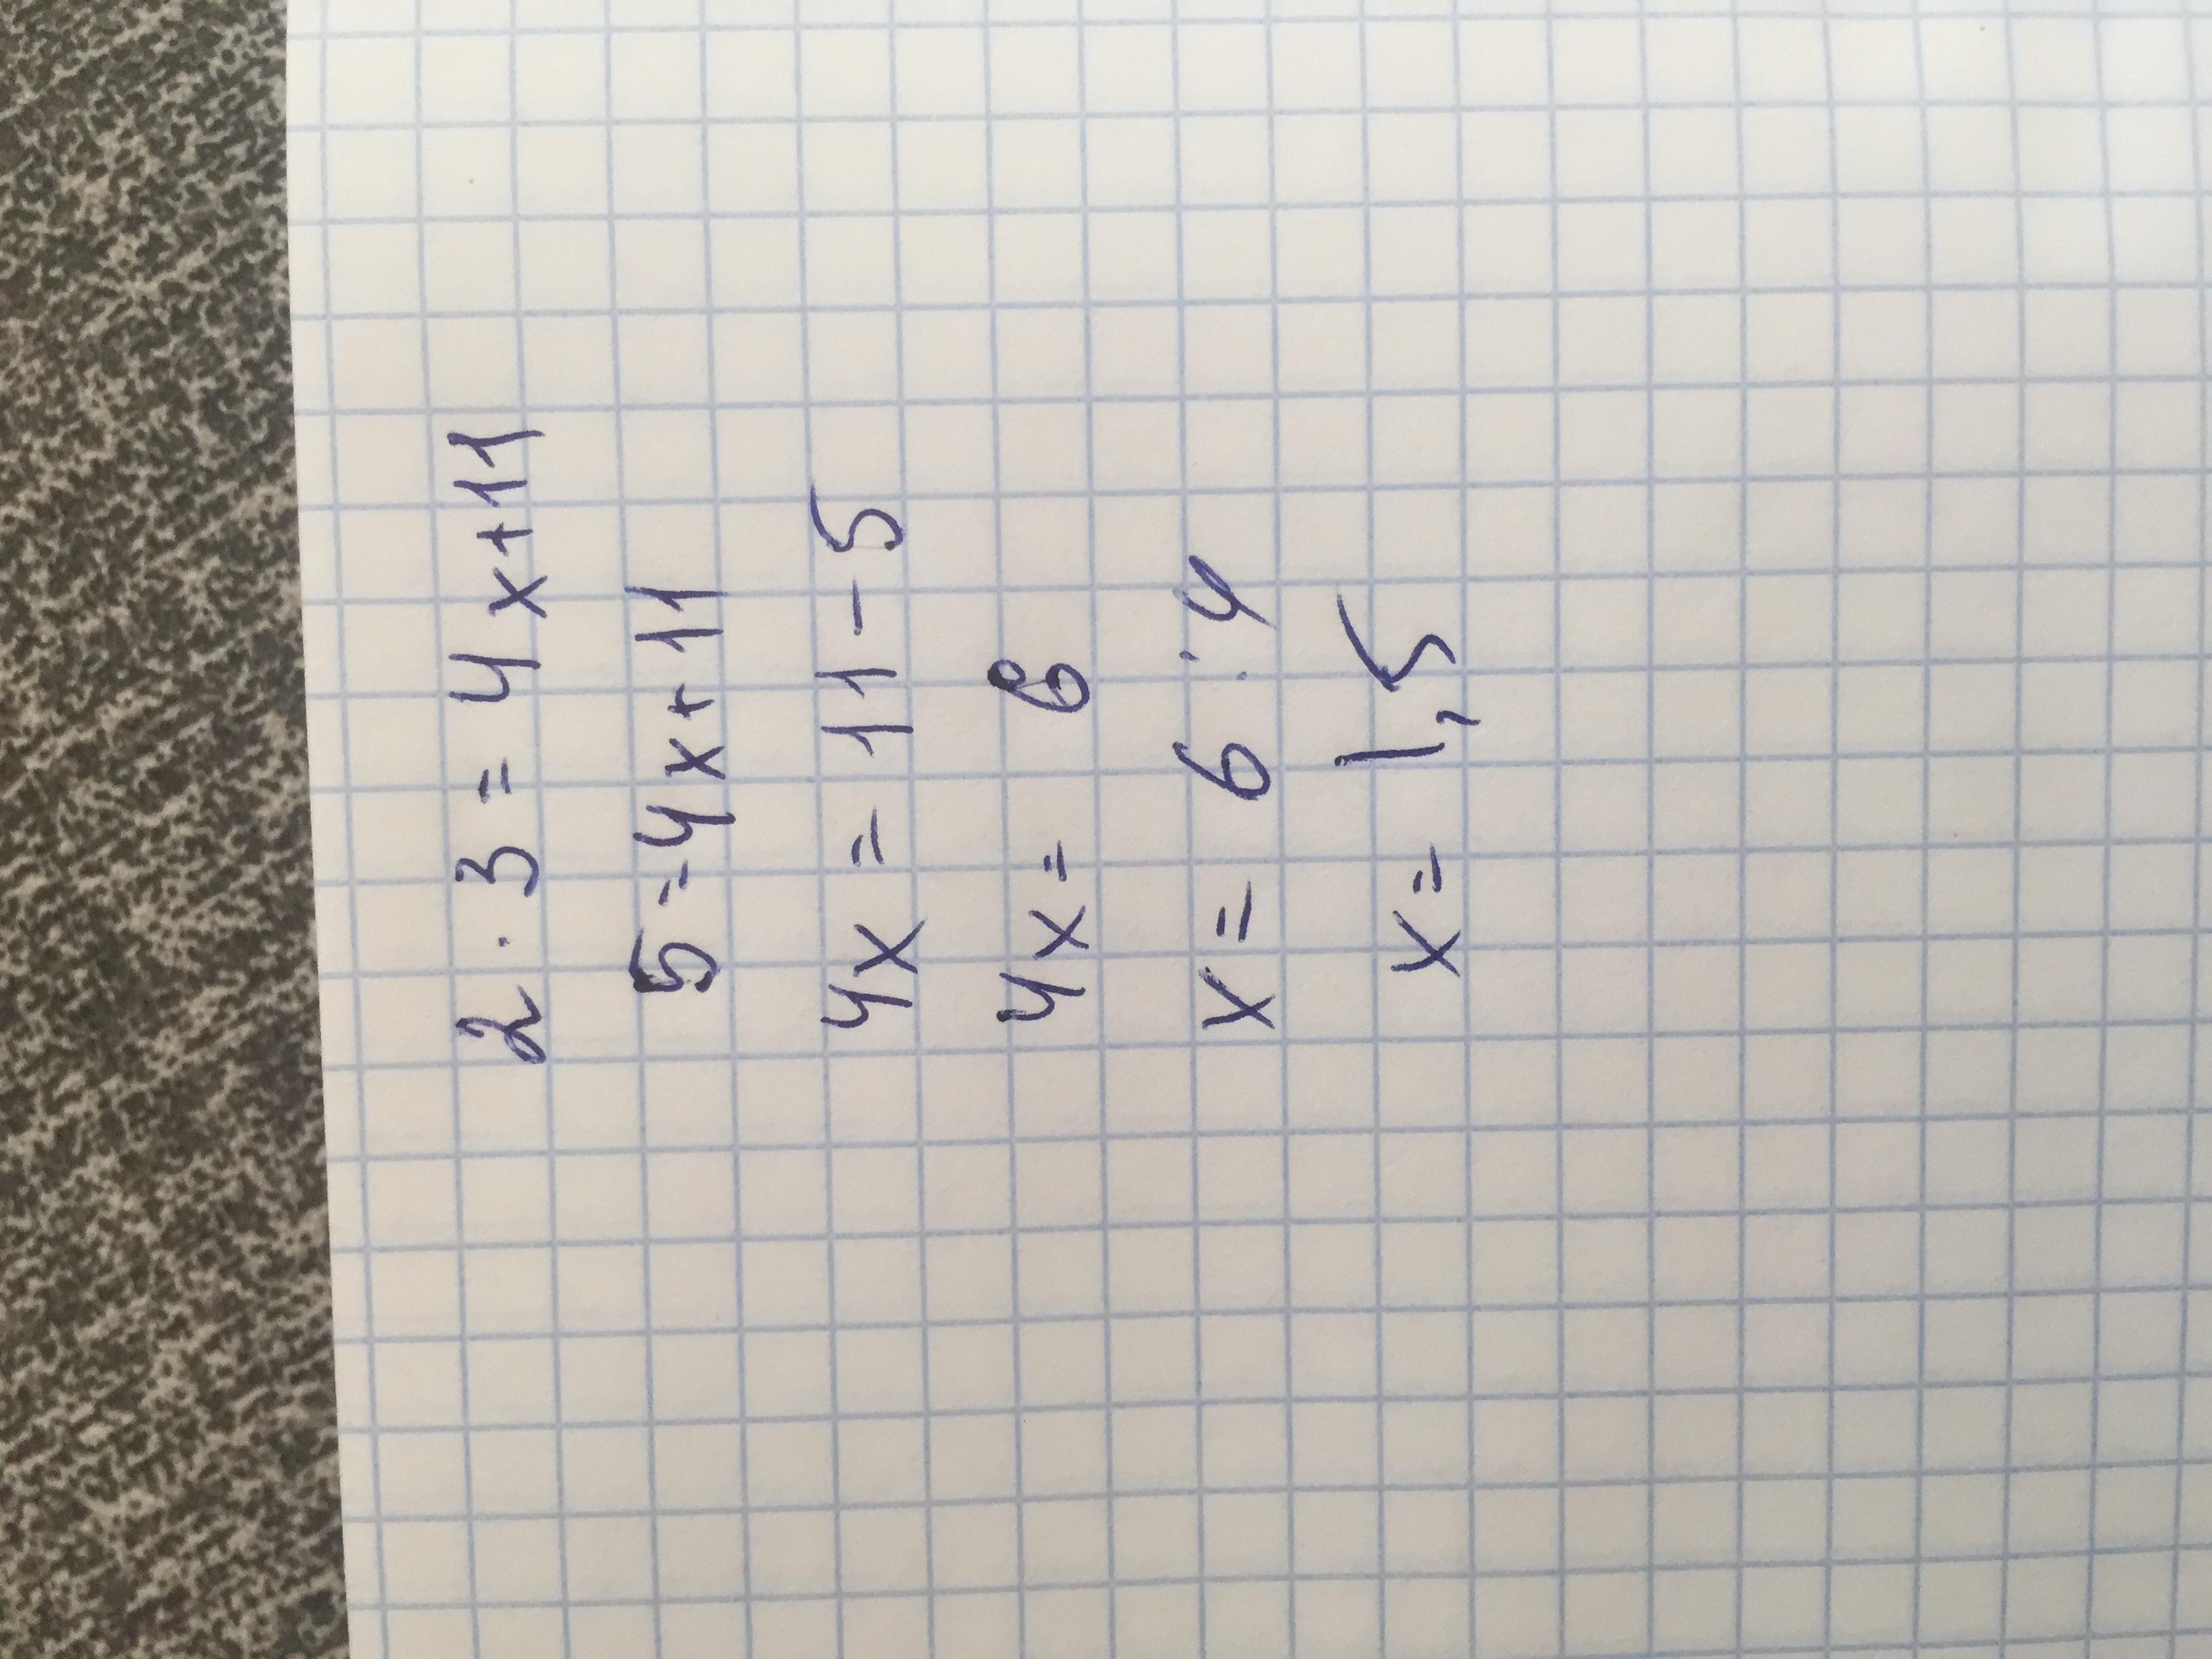 2 · 3 = 4x+11
5=4x+11
4x = 11-5
4x= 6
x= 6:4
x= 1,5